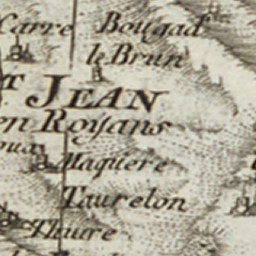 Carre Bougad
le Brun
T JEAN
en Royans
oua
Maguere
Taurelon
Thure